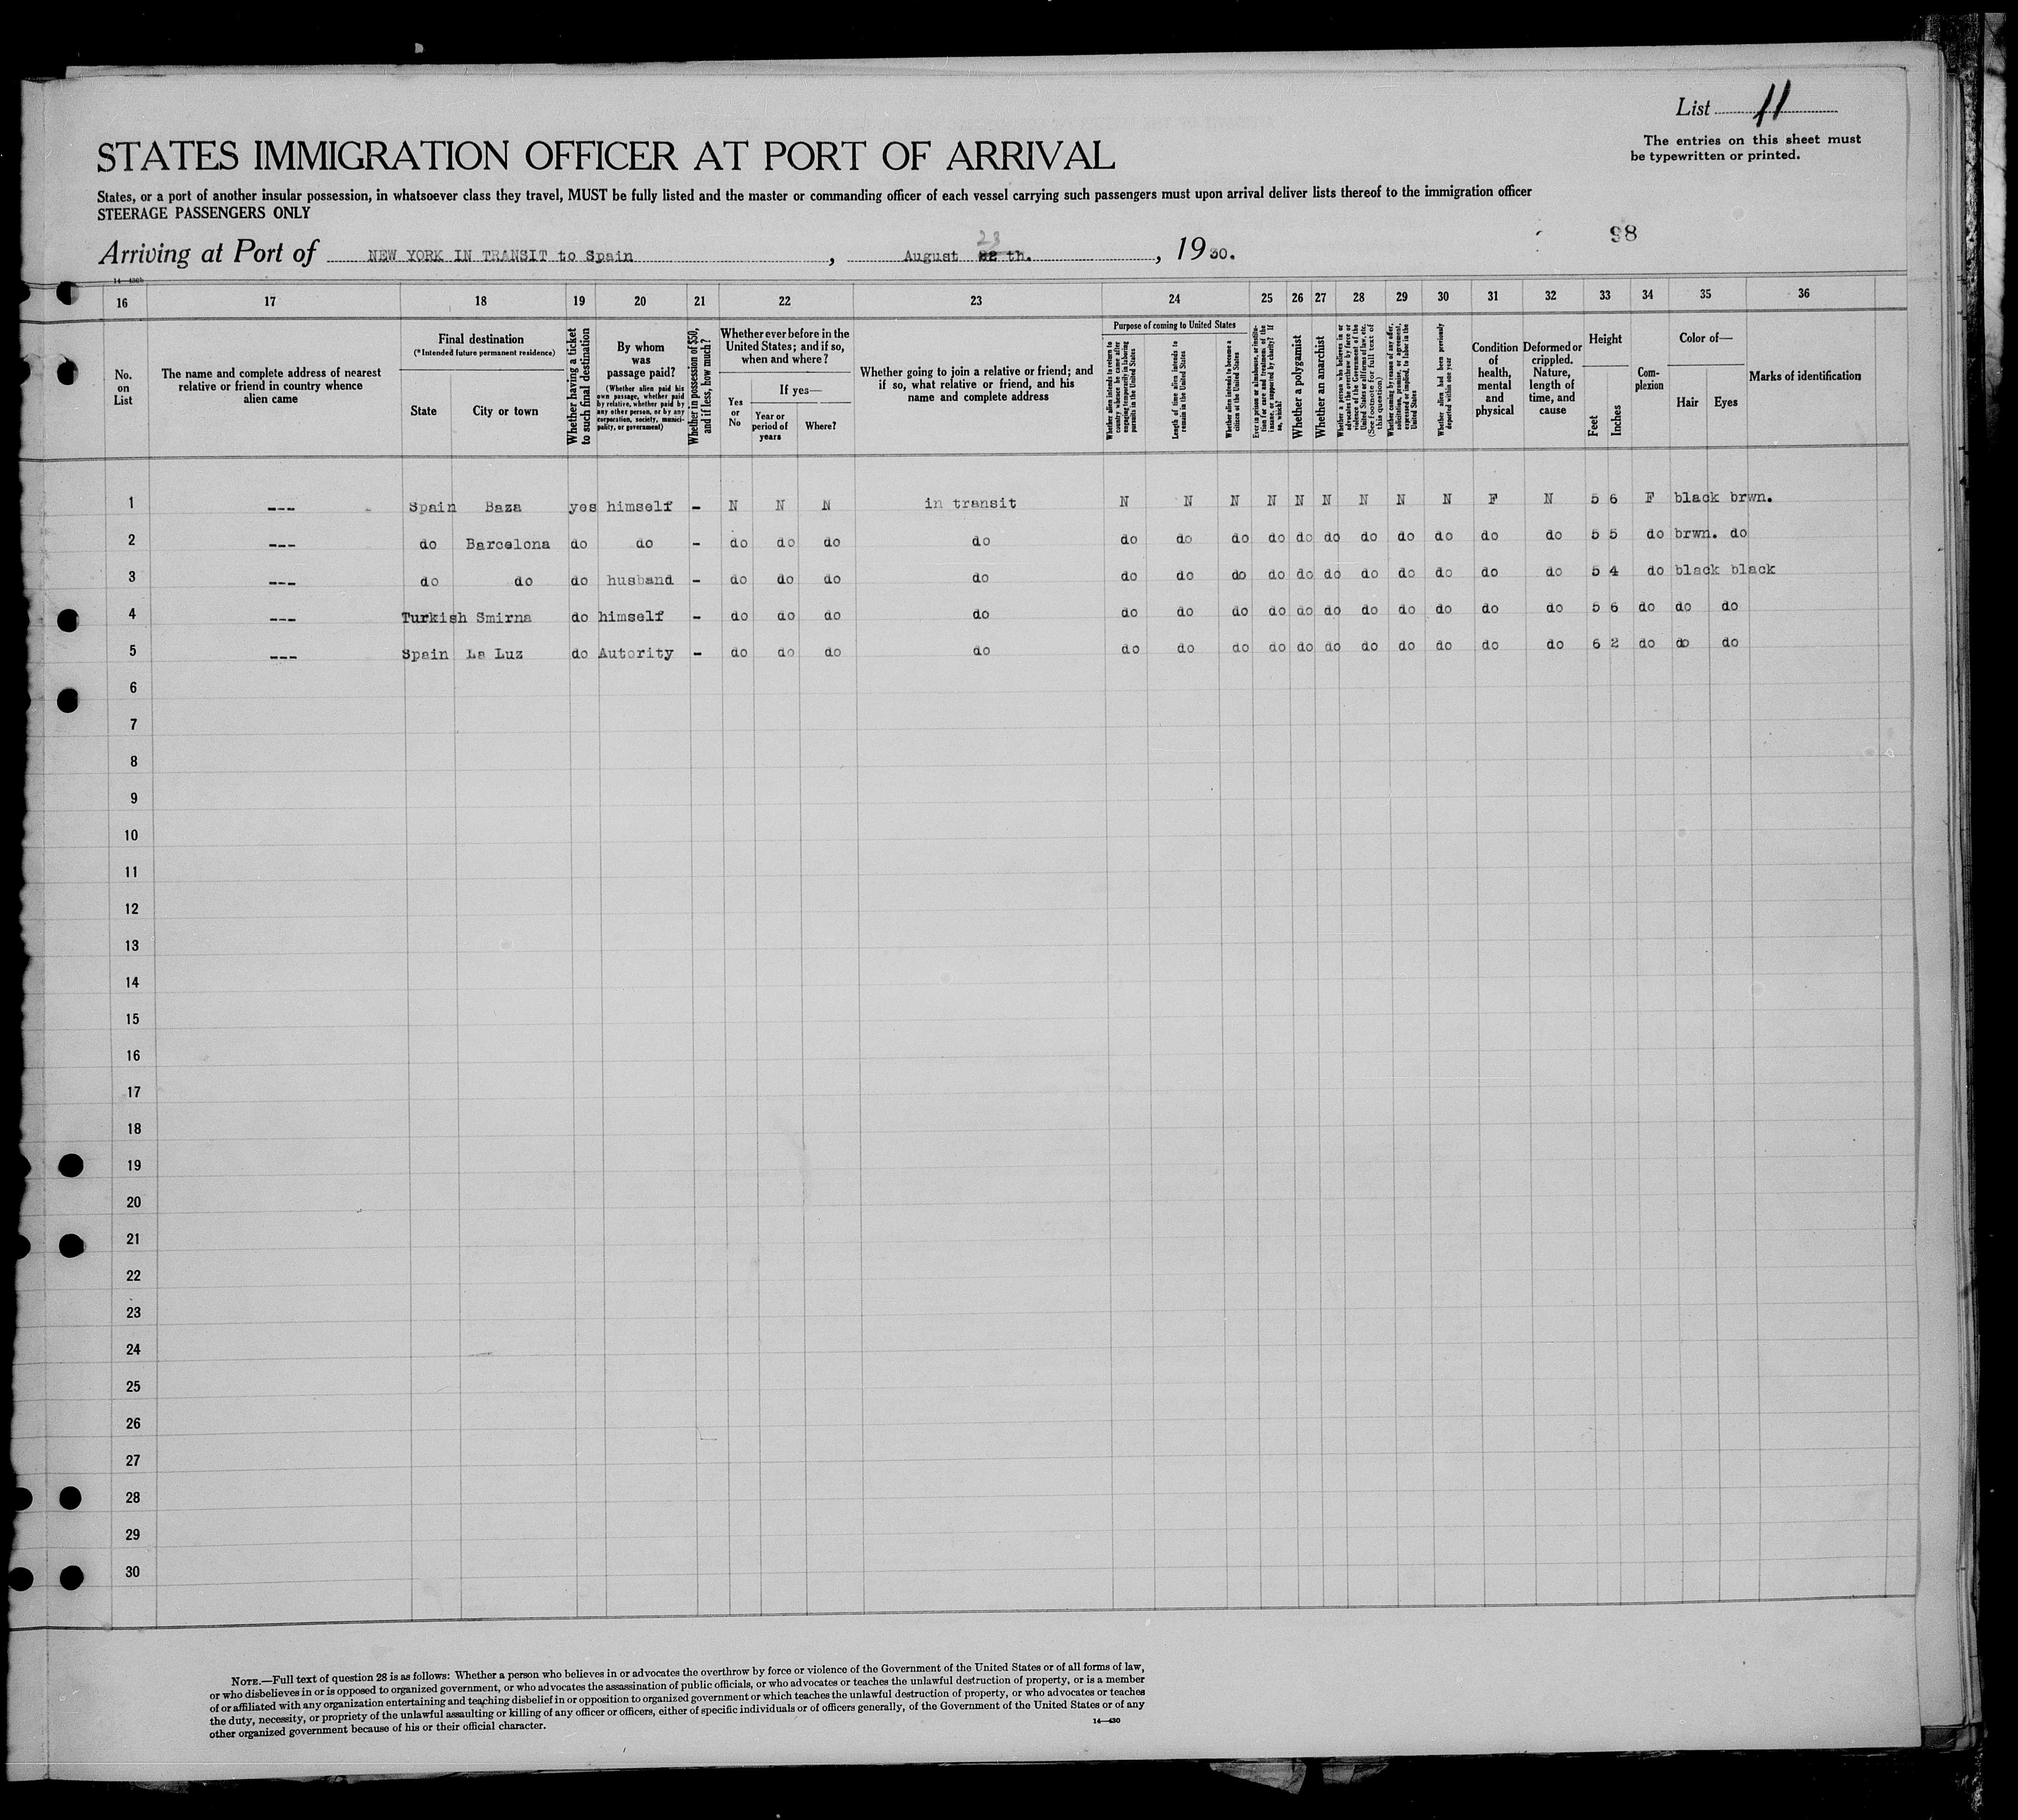 List 11
The entries on this sheet must
be typewritten or printed.
STATES IMMIGRATION OFFICER AT PORT OF ARRIVAL
States, or a port of another insular possession, in whatsoever class they travel, MUST be fully listed and the master or commanding officer of each vessel carrying such passengers must upon arrival deliver lists thereof to the immigration officer
STEERAGE PASSENGERS ONLY
98
23
Arriving at Port of NEW YORK IN TRANSIT to Spain, August 22 th., 1930.
14—430b
16 17 18 19 20 21 22 23 24 25 26 27 28 29 30 31 32 33 34 35 36
No. on List
The name and complete address of nearest relative or friend in country whence alien came
Final destination
(*Intended future permanent residence)
State
City or town
Whether having a ticket to such final destination
By whom was passage paid?
(Whether alien paid his own passage, whether paid by relative, whether paid by any other person, or by any corporation, society, municipality, or government)
Whether in possession of $50, and if less, how much?
Whether ever before in the United States; and if so, when and where?
Yes or No
If yes—
Year or period of years
Where?
Whether going to join a relative or friend; and if so, what relative or friend, and his name and complete address
Purpose of coming to United States
Whether alien intends to return to country whence he came after engaging temporarily in laboring pursuits in the United States
Length of time alien intends to remain in the United States
Whether alien intends to become a citizen of the United States
Ever in prison or almshouse, or institution for care and treatment of the insane, or supported by charity? If so, which?
Whether a polygamist
Whether an anarchist
Whether a person who believes in or advocates the overthrow by force or violence of the Government of the United States or all forms of law, etc. (See footnote for full text of this question)
Whether coming by reason of any offer, solicitation, promise, or agreement, expressed or implied, to labor in the United States
Whether alien had been previously deported within one year
Condition of health, mental and physical
Deformed or crippled. Nature, length of time, and cause
Height
Feet
Inches
Complexion
Color of—
Hair
Eyes
Marks of identification
1 --- Spain Baza yes himself - N N N in transit N N N N N N N N N F N 5 6 F black brwn.
2 --- do Barcelona do do - do do do do do do do do do do do do do do do 5 5 do brwn. do
3 --- do do do husband - do do do do do do do do do do do do do do do 5 4 do black black
4 --- Turkish Smirna do himself - do do do do do do do do do do do do do do do 5 6 do do do
5 --- Spain La Luz do Autority - do do do do do do do do do do do do do do do 6 2 do do do
6
7
8
9
10
11
12
13
14
15
16
17
18
19
20
21
22
23
24
25
26
27
28
29
30
NOTE.—Full text of question 28 is as follows: Whether a person who believes in or advocates the overthrow by force or violence of the Government of the United States or of all forms of law,
or who disbelieves in or is opposed to organized government, or who advocates the assassination of public officials, or who advocates or teaches the unlawful destruction of property, or is a member
of or affiliated with any organization entertaining and teaching disbelief in or opposition to organized government or which teaches the unlawful destruction of property, or who advocates or teaches
the duty, necessity, or propriety of the unlawful assaulting or killing of any officer or officers, either of specific individuals or of officers generally, of the Government of the United States or of any
other organized government because of his or their official character.
14—430